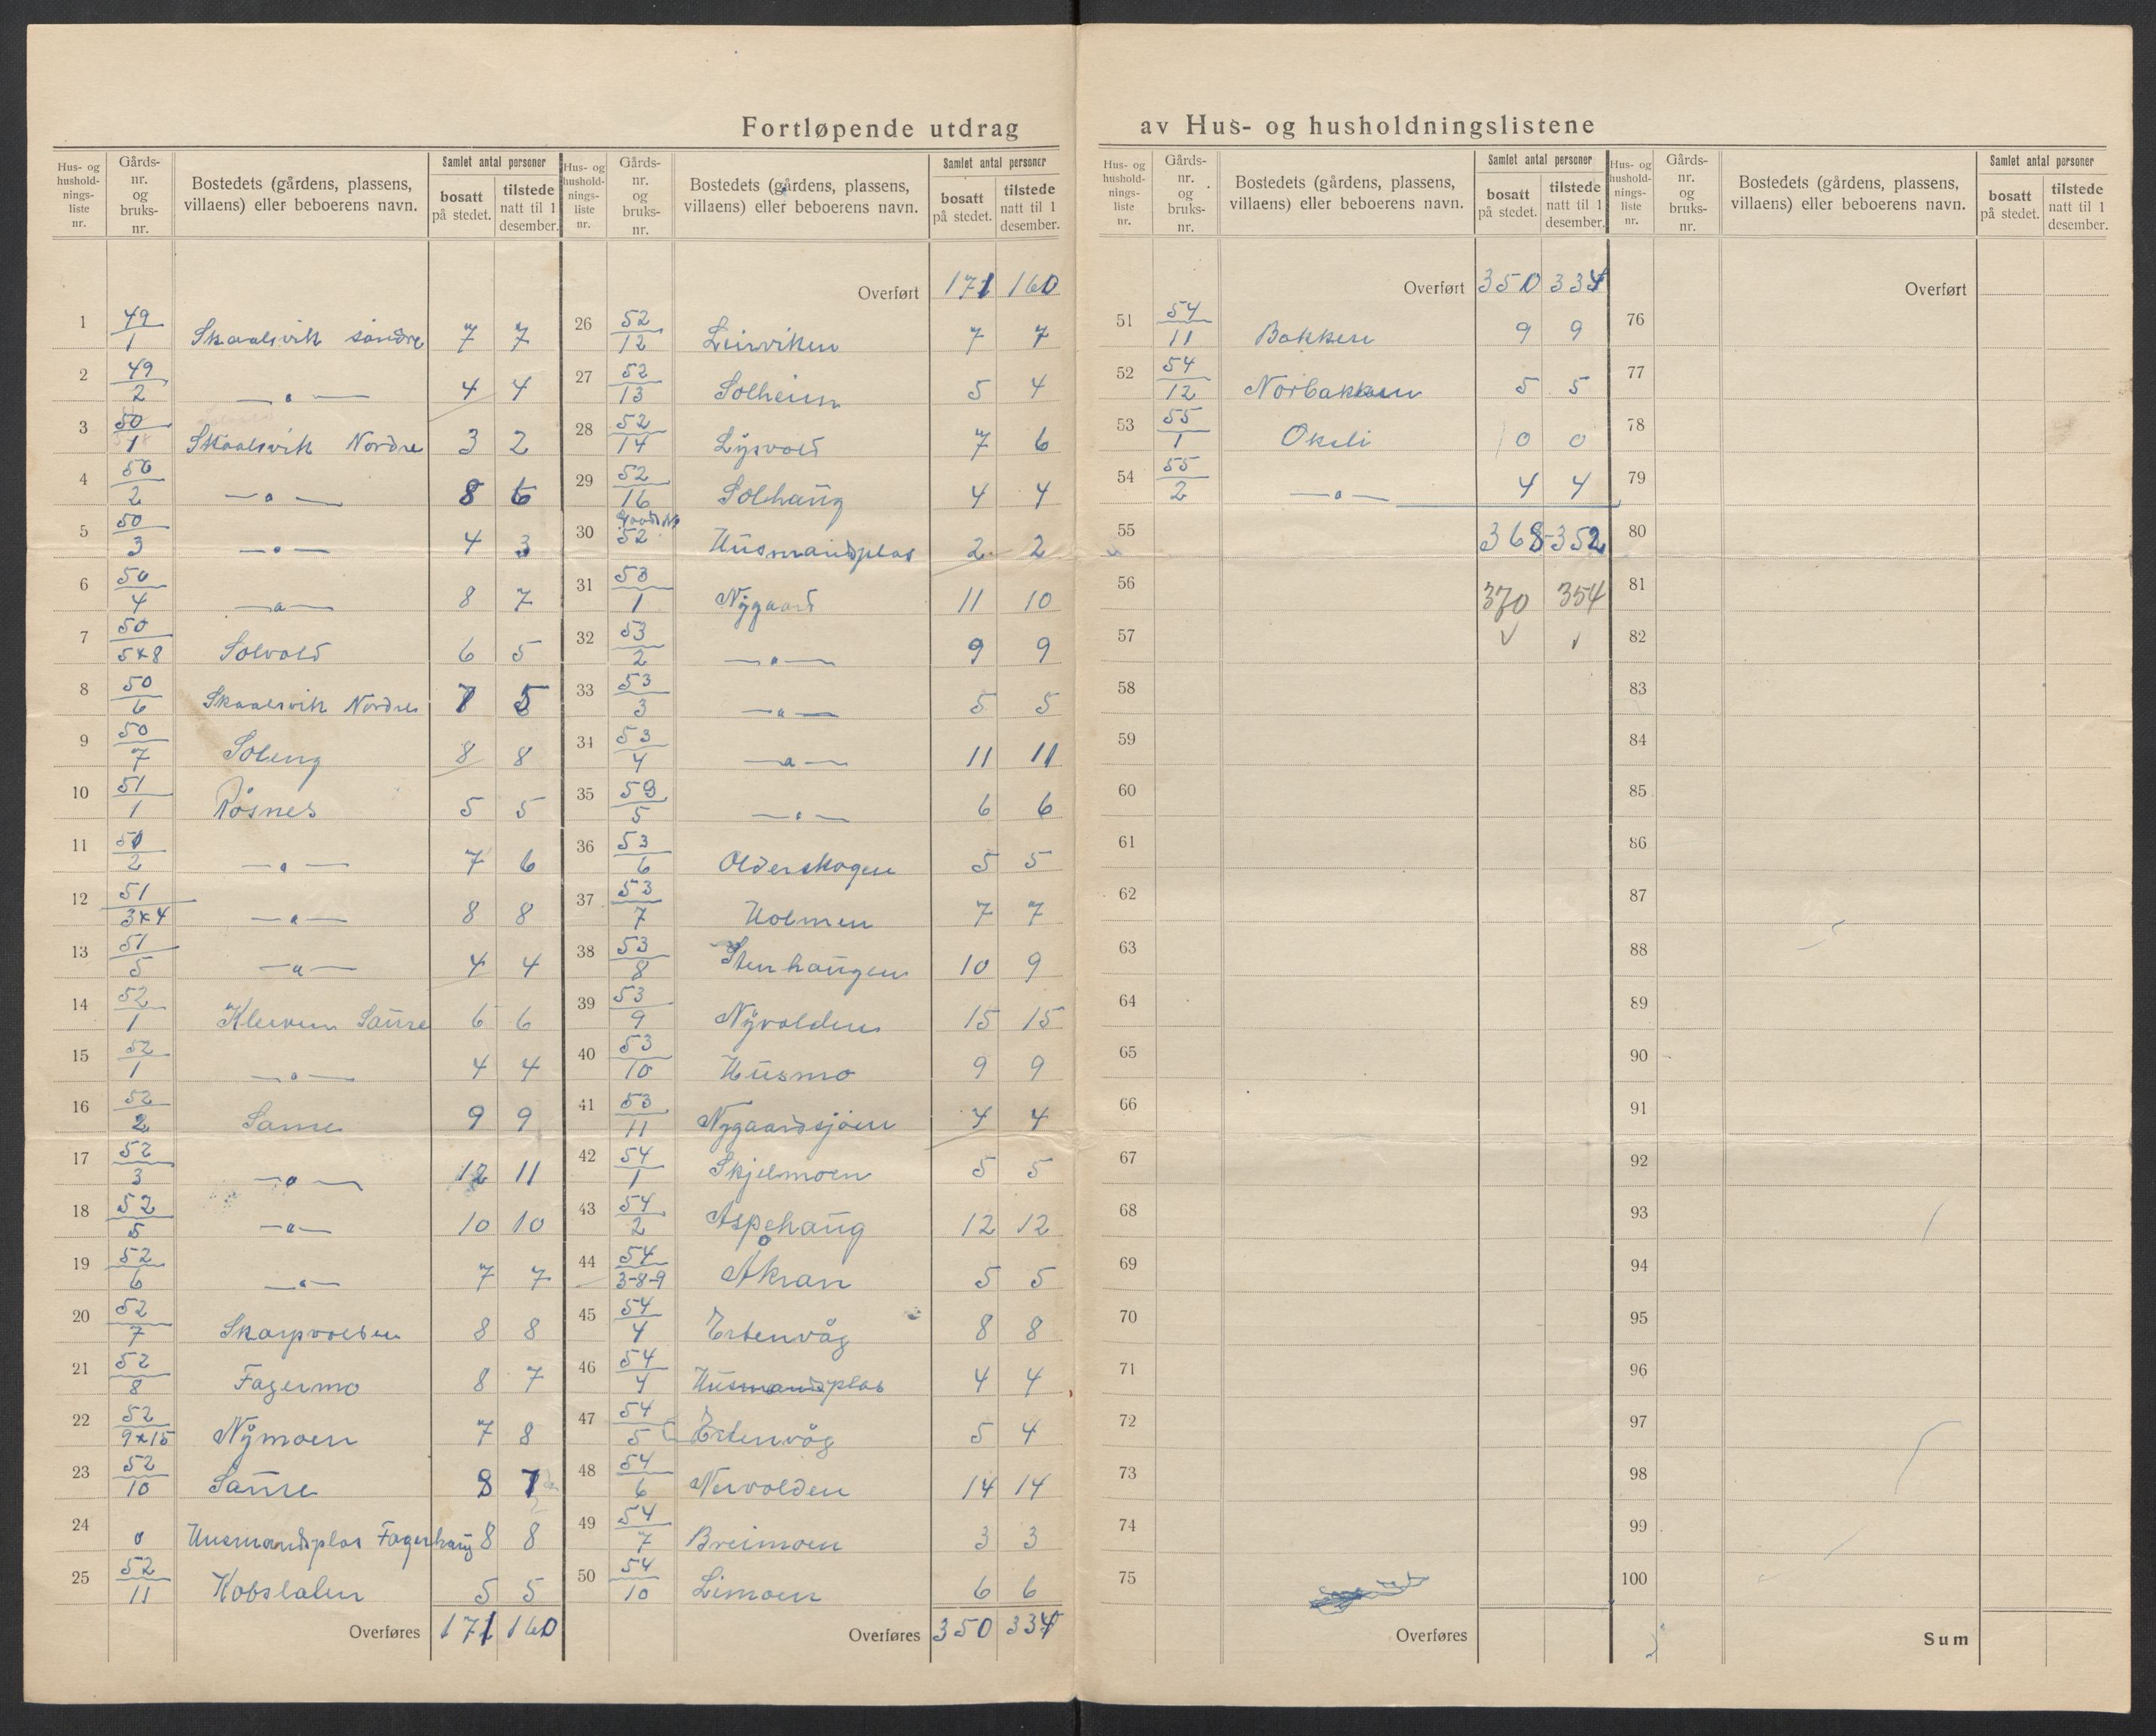 Fortløpende utdrag av Hus- og husholdningslistene
Hus- og husholdnings-liste nr. | Gårds-nr. og bruks-nr. | Bostedets (gårdens, plassens, villaens) eller beboerens navn. | Samlet antal personer bosatt på stedet. | tilstede natt til 1 desember.
1 49/1 Skaalsvik søndre 7 7
2 49/2 —〃— 4 4
3 50/1 Skaalsvik Nordre 3 2
4 50/2 —〃— 8 6
5 50/3 —〃— 4 3
6 50/4 —〃— 8 7
7 50/5×8 Solvold 6 5
8 50/6 Skaalsvik Nordre 7 5
9 50/7 Soleng 8 8
10 51/1 Røsnes 5 5
11 50/2 —〃— 7 6
12 51/3×4 —〃— 8 8
13 51/5 —〃— 4 4
14 52/1 Kleiven Saure 6 6
15 52/1 —〃— 4 4
16 52/2 Saure 9 9
17 52/3 —〃— 12 11
18 52/5 —〃— 10 10
19 52/6 —〃— 7 7
20 52/7 Skarpvolden 8 8
21 52/8 Fagermo 8 7
22 52/9×15 Nymoen 7 8
23 52/10 Saure 8 7
24 0 Husmandsplas Fagerhaug 8 8
25 52/11 Kobslalen 5 5
Overføres 171 160
Hus- og husholdnings-liste nr. | Gårds-nr. og bruks-nr. | Bostedets (gårdens, plassens, villaens) eller beboerens navn. | Samlet antal personer bosatt på stedet. | tilstede natt til 1 desember.
Overført 171 160
26 52/12 Leirviken 7 7
27 52/13 Solheim 5 4
28 52/14 Lysvold 7 6
29 52/16 Solhaug 4 4
30 Gaards No 52 Husmandsplas 2 2
31 53/1 Nygaard 11 10
32 53/2 —〃— 9 9
33 53/3 —〃— 5 5
34 53/4 —〃— 11 11
35 53/5 —〃— 6 6
36 53/6 Olderskogen 5 5
37 53/7 Holmen 7 7
38 53/8 Stenhaugen 10 9
39 53/9 Nyvolden 15 15
40 53/10 Husmo 9 9
41 53/11 Nygaardsjøen 4 4
42 54/1 Skjelmoen 5 5
43 54/2 Aspehaug 12 12
44 54/3-8-9 Åkran 5 5
45 54/4 Ertenvåg 8 8
46 54/4 Husmandsplas 4 4
47 54/5 Ertenvåg 5 4
48 54/6 Nervolden 14 14
49 54/7 Breimoen 3 3
50 54/10 Limoen 6 6
Overføres 350 334
Hus- og husholdnings-liste nr. | Gårds-nr. og bruks-nr. | Bostedets (gårdens, plassens, villaens) eller beboerens navn. | Samlet antal personer bosatt på stedet. | tilstede natt til 1 desember.
Overført 350 334
51 54/11 Bakken 9 9
52 54/12 Norbakken 5 5
53 55/1 Oksli 0 0
54 55/2 —〃— 4 4
55 368 - 352
56 370 354
57 ✓ ✓
58
59
60
61
62
63
64
65
66
67
68
69
70
71
72
73
74
75
Overføres
Hus- og husholdnings-liste nr. | Gårds-nr. og bruks-nr. | Bostedets (gårdens, plassens, villaens) eller beboerens navn. | Samlet antal personer bosatt på stedet. | tilstede natt til 1 desember.
Overført
76
77
78
79
80
81
82
83
84
85
86
87
88
89
90
91
92
93
94
95
96
97
98
99
100
Sum